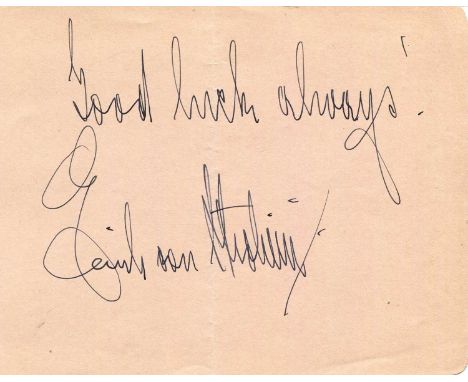 "Good luck always".
Erich von Stroheim